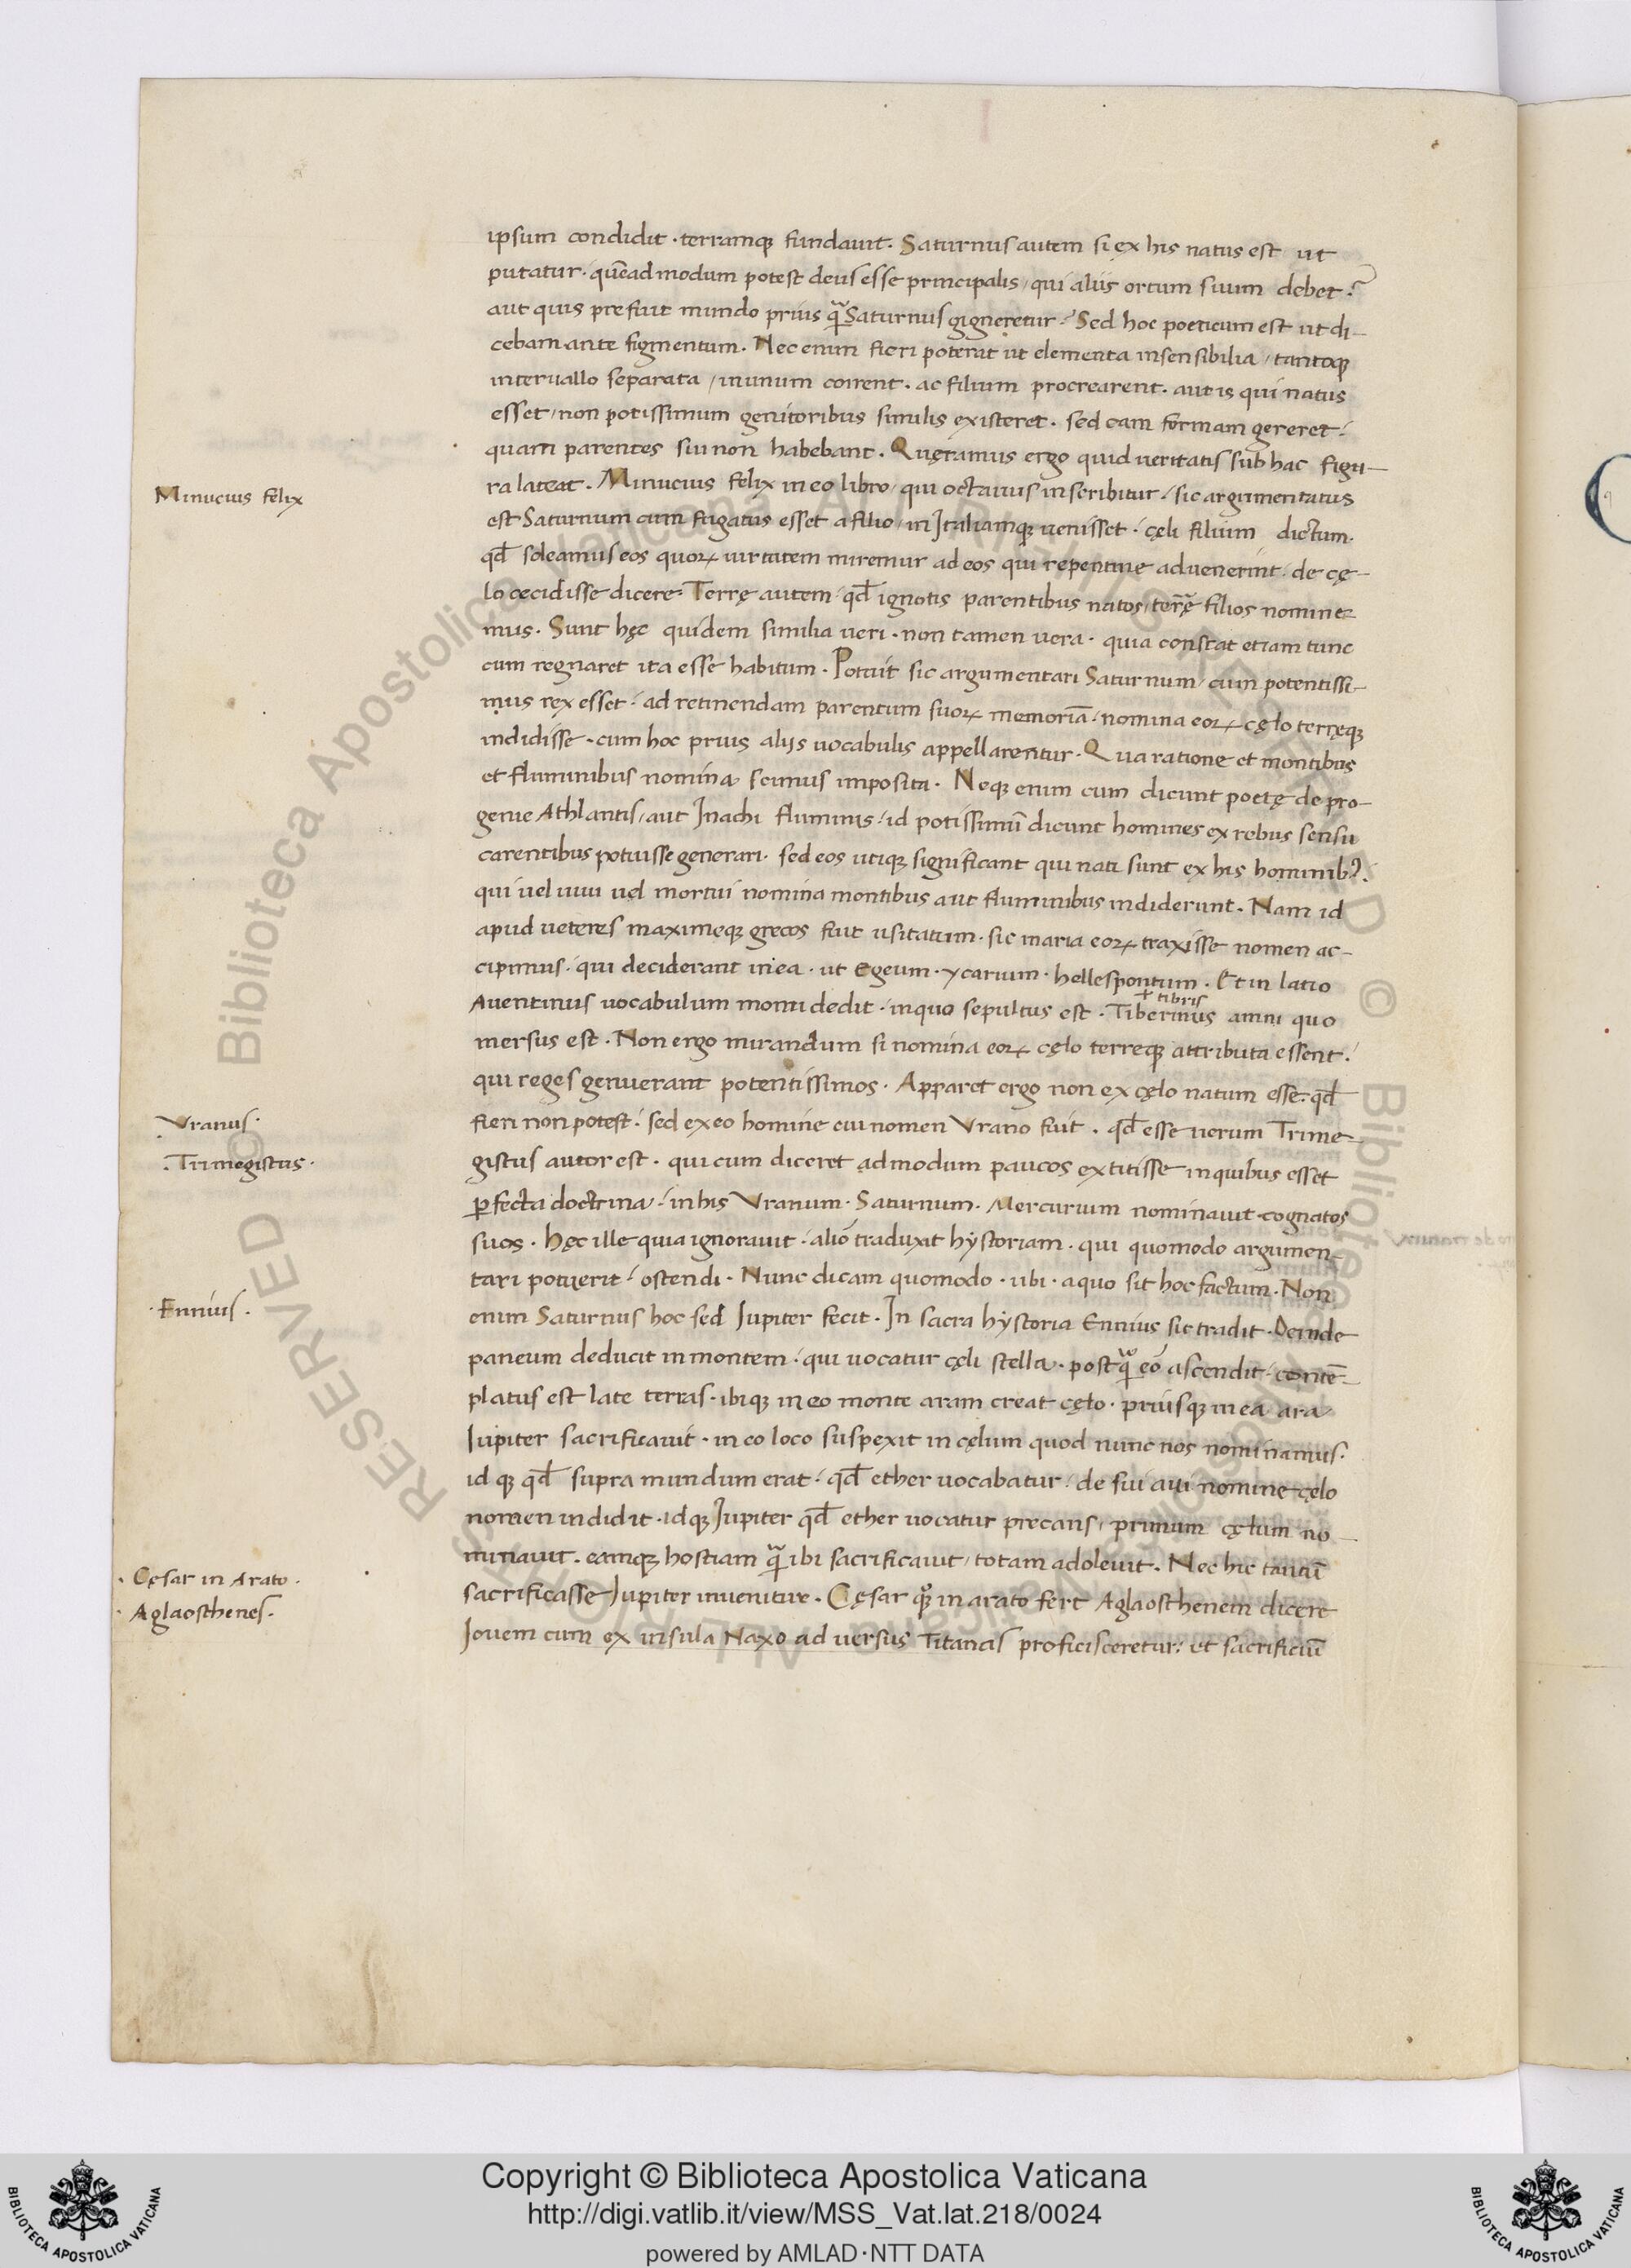 ipsum condidit · terramqꝫ fundauit. Saturnus autem si ex his natus est ut
putatur · quēadmodum potest deus esse principalis, qui aliis ortum suum debet?
aut quis prefuit mundo prius qᷓ Saturnus gigneretur? Sed hoc poeticum est ut di-
cebam ante figmentum. Nec enim fieri poterat ut elementa insensibilia, tantoqꝫ
interuallo separata, in unum coirent. ac filium procrearent. aut is qui natus
esset, non potissimum genitoribus similis existeret. sed eam formam gereret.
quam parentes sui non habebant. Queramus ergo quid ueritatis sub hac figu-
ra lateat. Minucius felix in eo libro, qui octauus inscribitur, sic argumentatus
Minucius felix
est Saturnum cum fugatus esset a filio, in Italiamqꝫ uenisset · cęli filium dictum.
qđ soleamus eos quoꝝ uirtutem miremur ad eos qui repentine aduenerint · de cę-
lo cecidisse dicere. Terrę autem · qđ ignotis parentibus natos, terrę filios nomine-
mus. Sunt hęc quidem similia ueri · non tamen uera · quia constat etiam tunc
cum regnaret ita esse habitum. Potuit sic argumentari Saturnum, cum potentissi-
mus rex esset · ad retinendam parentum suoꝝ memoriā · nomina eoꝝ cęlo terręqꝫ
indidisse · cum hoc prius aliis uocabulis appellarentur. Qua ratione et montibus
et fluminibus nomina scimus imposita. Neqꝫ enim cum dicunt poetę de pro-
genie Athlantis, aut Inachi fluminis · id potissimū dicunt homines ex rebus sensu
carentibus potuisse generari · sed eos utiqꝫ significant qui nati sunt ex his hominibꝰ.
qui uel uiui uel mortui nomina montibus aut fluminibus indiderunt. Nam id
apud ueteres maximeqꝫ grecos fuit usitatum · sic maria eoꝝ traxisse nomen ac-
cipimus · qui deciderant in ea · ut Egeum · ycarium · hellespontum. Et in latio
Auentinus uocabulum monti dedit · in quo sepultus est. Tiberinus amni quo
+ tibris
mersus est. Non ergo mirandum si nomina eoꝝ cęlo terreqꝫ attributa essent.
qui reges genuerant potentissimos. Apparet ergo non ex cęlo natum esse · qđ
fieri non potest · sed ex eo homine cui nomen Vrano fuit. qđ esse uerum Trime-
Vranus.
gistus autor est. qui cum diceret admodum paucos extitisse in quibus esset
Trimegistus.
ꝑfecta doctrina · in his Vranum · Saturnum · Mercurium nominauit · cognatos
suos. Hęc ille quia ignorauit · alio traduxit hystoriam. qui quomodo argumen-
tari potuerit · ostendi. Nunc dicam quomodo · ubi · a quo sit hoc factum. Non
enim Saturnus hoc sed Iupiter fecit. In sacra hystoria Ennius sic tradit. Deinde
· Ennius.
paneum deducit in montem · qui uocatur cęli stella. postqᷓ eo ascendit · contē-
platus est late terras · ibiqꝫ in eo monte aram creat cęlo · priusqꝫ in ea ara
Iupiter sacrificauit · in eo loco suspexit in cęlum quod nunc nos nominamus.
idqꝫ qđ supra mundum erat · qđ ether uocabatur · de sui aui nomine cęlo
nomen indidit · idqꝫ Iupiter qđ ether uocatur precans, primum cęlum no-
minauit. eamqꝫ hostiam qᷓ ibi sacrificauit, totam adoleuit. Nec hic tantū
sacrificasse Iupiter inuenitur. Cęsar quoqꝫ in arato fert Aglaosthenem dicere
· Cęsar in Arato.
· Aglaosthenes.
Iouem cum ex insula Naxo aduersus Titanas proficisceretur: et sacrificiū
Copyright © Biblioteca Apostolica Vaticana
http://digi.vatlib.it/view/MSS_Vat.lat.218/0024
powered by AMLAD·NTT DATA
BIBLIOTECA APOSTOLICA VATICANA
BIBLIOTECA APOSTOLICA VATICANA